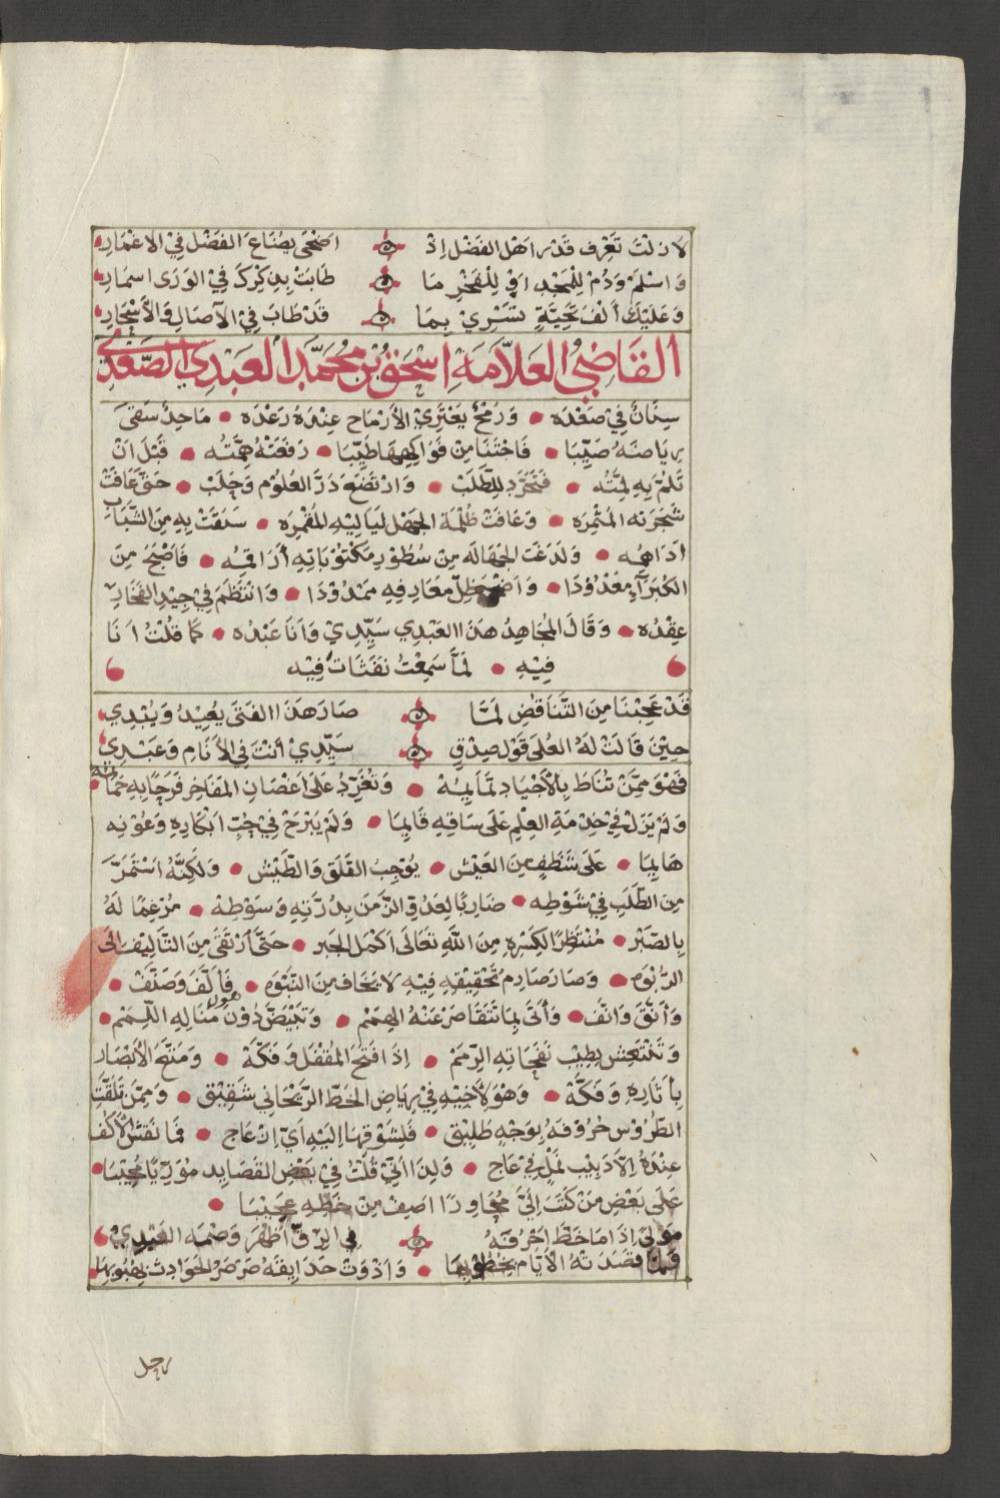 لا زلت تعرف قدر اهل الفضل اذ اضحى يضاع الفضل في الاغمار
وَاسْلَمْ وَدُمْ لِلْمَجْدِ اوْ لِلْفَخْرِ مَا طَابَتْ بِذِكْرِكَ فِي الوَرَى اسمار
وَعَلَيْكَ أَلْفُ تَحِيَّةٍ تَسْرِيْ بِمَا قَدْ طَابَ فِيْ الآصَالِ وَالأَسْحَارِ
القَاضِي العَلاَّمَةِ اِسْحَقُ بْنُ مُحَمَّدِ العَبْدِي الصَّعْدِي
سِنَانٌ فِيْ صَعْدَه • وَرُمْحٌ يَعْتَرِيْ الأَرْمَاحَ عِنْدَهُ رَعْدَه • مَاجِدٌ سَقَى
رِيَاضَهُ صَيِّبًا • فَاجْتَنَا مِنْ فَوَاكِهِهَا طَيِّبًا • رَفَعَتْهُ هِمَّتُه • قَبْلَ انْ
تَلُمَّ بِهِ لِمَّتُه • فَتَجَرَّدَ لِلطَّلَبْ • وَارْتَضَعَ دَرَّ العُلُوْمِ وَحَلَبْ • حَتَّى عَافَتْ
شَجَرَتَه المُثْمِرَه • وَعَافَتْ ظُلْمَةَ الجَهْلِ لَيَالِيْهِ المُقْمِرَه • سَبَقَتْ بِهِ مِنَ الشَّبَابِ
ادَاهُه • وَلَدَغَتِ الجَهَالَه مِنْ سُطُوْرِ مَكْتُوْبَاتِهِ أَرَاقِمُه • فَاصْبَحَ مِنَ
الكُبَرَآءِ مَعْدُوْدَا • وَاضْحَى ظِلُّ مَعَارِفِهِ مَمْدُوْدَا • وَانْتَظَمَ فِيْ جِيْدِ الفَخَارِ
عِقْدُه • وَقَالَ المُجَاهِدُ هَذَا العَبْدِي سَيِّدِيْ وَانَا عَبْدُه • كَمَا قُلْتُ انَا
فِيْهِ • لَمَّا سَمِعْتُ نَفَثَاتِ فِيْه
قَدْ عَجِبْنَا مِنَ التَّنَاقُضِ لَمَّا صَارَ هَذَا الفَتَى يُعِيْدُ وَيُبْدِي
حِيْنَ قَالَتْ لَهُ العُلَى قَوْلَ صِدْقٍ سَيِّدِيْ أَنْتَ فِي الأَنَامِ وَعَبْدِيْ
فَهْوَ مِمَّنْ تُنَاطُ بِالأَجْيَادِ تَمَائِمُهْ • وَتُغَرِّدُ عَلَى اَغْصَانِ المَفَاخِرِ فَرَحًا بِهِ حَمَائمه
وَلَمْ يَزَلْ فِيْ خِدْمَةِ العِلْمِ عَلَى سَاقِهِ قَائِمَا • وَلَمْ يَبْرَحْ فِيْ حُبِّ ابْكَارِهِ وَعُوْنِه
هَائِمَا • عَلَى شَظَفٍ مِنَ العَيْش • يُوْجِبُ القَلَقَ وَالطَّيْش • وَلَكِنَّهُ اسْتَمَرَّ
مِنَ الطَّلَبِ فِيْ شَوْطِه • ضَارِبًا لِعَدُوِّ الزَّمَنِ بِدُرَّتِهِ وَسَوْطِهْ • مُرْغِمًا لَهُ
بِالصَّبْر • مُنْتَظِرًا لِكَسْرِهِ مِنَ اللَّهِ تَعَالَى اكْمَلَ الجَبْر • حَتَّى ارْتَقَى مِنَ التَّالِيْفِ الَى
الرَّبْوَه • وَصَارَ صَارِمُ تَحْقِيْقِهِ فِيْهِ لاَ يَخَافُ مِنَ النَّبْوَه • فَأَلَّفَ وَصَنَّفْ •
وَأَنَّقَ وَانَّف • وَأَتَى بِمَا تَتَقَاصَرُ عَنْهُ الهِمَمْ • وَتَبْيَضُّ دُوْنَ مَنَالِهِ اللِّمَمْ •
وَتَنْتَعِشُ بِطِيْبِ نَفَحَاتِهِ الرِّمَمْ • اِذَا فَتَحَ المُقْفَلَ وَفَكَّهْ • وَمَتَّعَ الأَبْصَارَ
بِأَثَارِهِ وَفَكَّهْ • وَهْوَ لأَخِيْهِ فِيْ رِيَاضِ الخَطِّ الرَّيْحَانِي شَقِيْق • وَمِمَّنْ تَلَقَّتِ
الطُّرُوْسُ حُرُوْفَهُ بِوَجْهٍ طَلِيْق • فَلِشَوْقِهَا اِلَيْهِ أَيُّ اِزْعَاج • فَمَا نَقْشُ الأَكُفِّ
عِنْدَهُ اِلاَّ دَبِيْبُ نَمْلٍ فِيْ عَاج • وَلِذَا انِّيْ قُلْتُ فِيْ بَعْضِ القَصَايدِ مُوَرِّيًا مُجِيْبًا •
عَلَى بَعْضِ مَنْ كَتَبَ اِلَيَّ مُحَاوِرًا اصِفُ مِنْ خَطِّهِ عَجِيْبَا •
مَوْلَىً اِذَا مَا خَطَّ احْرُفَهُ فِي الرِّقِّ اظْهَرَ وَصْمَه العَبْدِيْ
فلما قَصَدَتْهُ الأَيَّام بِخُطُوْبِهَا • وَاذْوَتْ حَدَايِقَهُ صَرْصَرُ الحَوَادِثِ بِهُبُوْبِهَا •
رحل